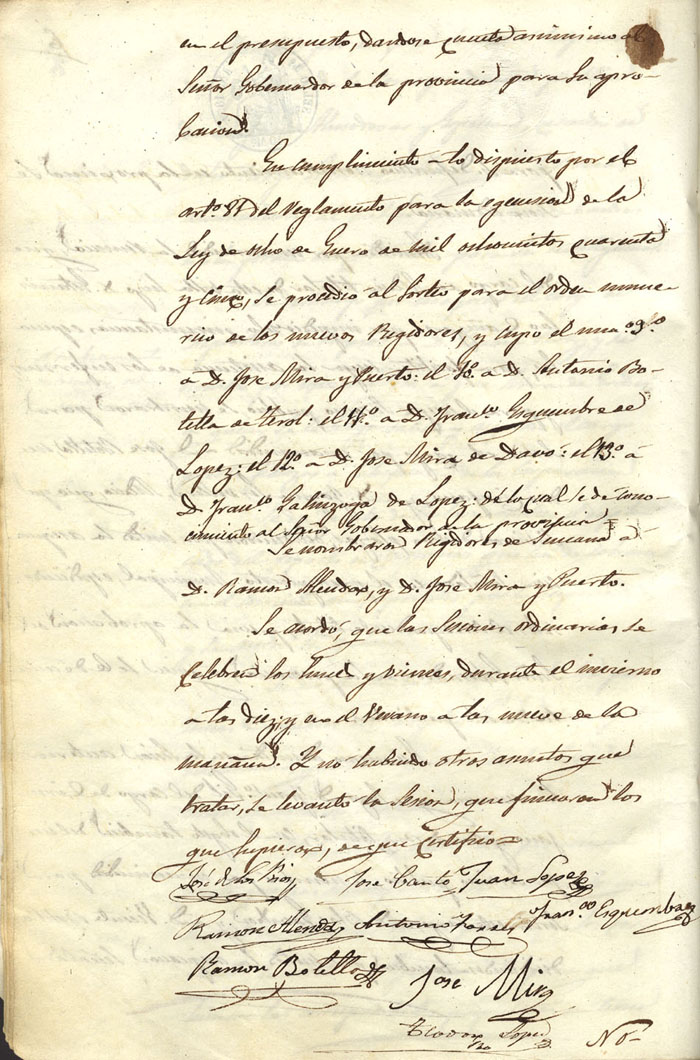 en el presupuesto, dandose cuenta asimismo al
Señor Gobernador de la provincia para su apro-
bacion.
En cumplimiento a lo dispuesto por el
arto. 37 del reglamento para la egecusion de la
Ley de ocho de Enero de mil ochocientos cuarenta
y cinco, se procedió al sorteo para el orden nume-
rico de los nuevos Regidores, y cupo el num.º 9.º
a D. Jose Mira y Puerto: el 10.º a D. Antonio Bo-
tella de Terol: el 11.º a D. Franco. Esquembre de
Lopez: el 12.º a D. Jose Mira de Davó: el 13.º á
D. Franco. Galinzoga de Lopez: de lo cual se dé cono-
cimiento al Señor Gobernador de la provincia
Se nombraron Regidores de Semana á
D. Ramon Alenda, y D. Jose Mira y Puerto.
Se acordó, que las sesiones ordinarias se
celebren los lunes y viernes, durante el invierno
a las diez, y en el Verano a las nueve de la
mañana. Y no habiendo otros asuntos que
tratar, se levanto la sesion, que firmaron los
que supieron, de que certifico=
José de los Rios Jose Cantó Juan Lopez
Ramon Alenda Antonio Franco. Esquembre
Ramon Botella Jose Mira
Teodoro Lopez No-